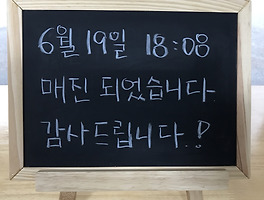 6월 19일 18:08
매진 되었습니다
감사드립니다.!